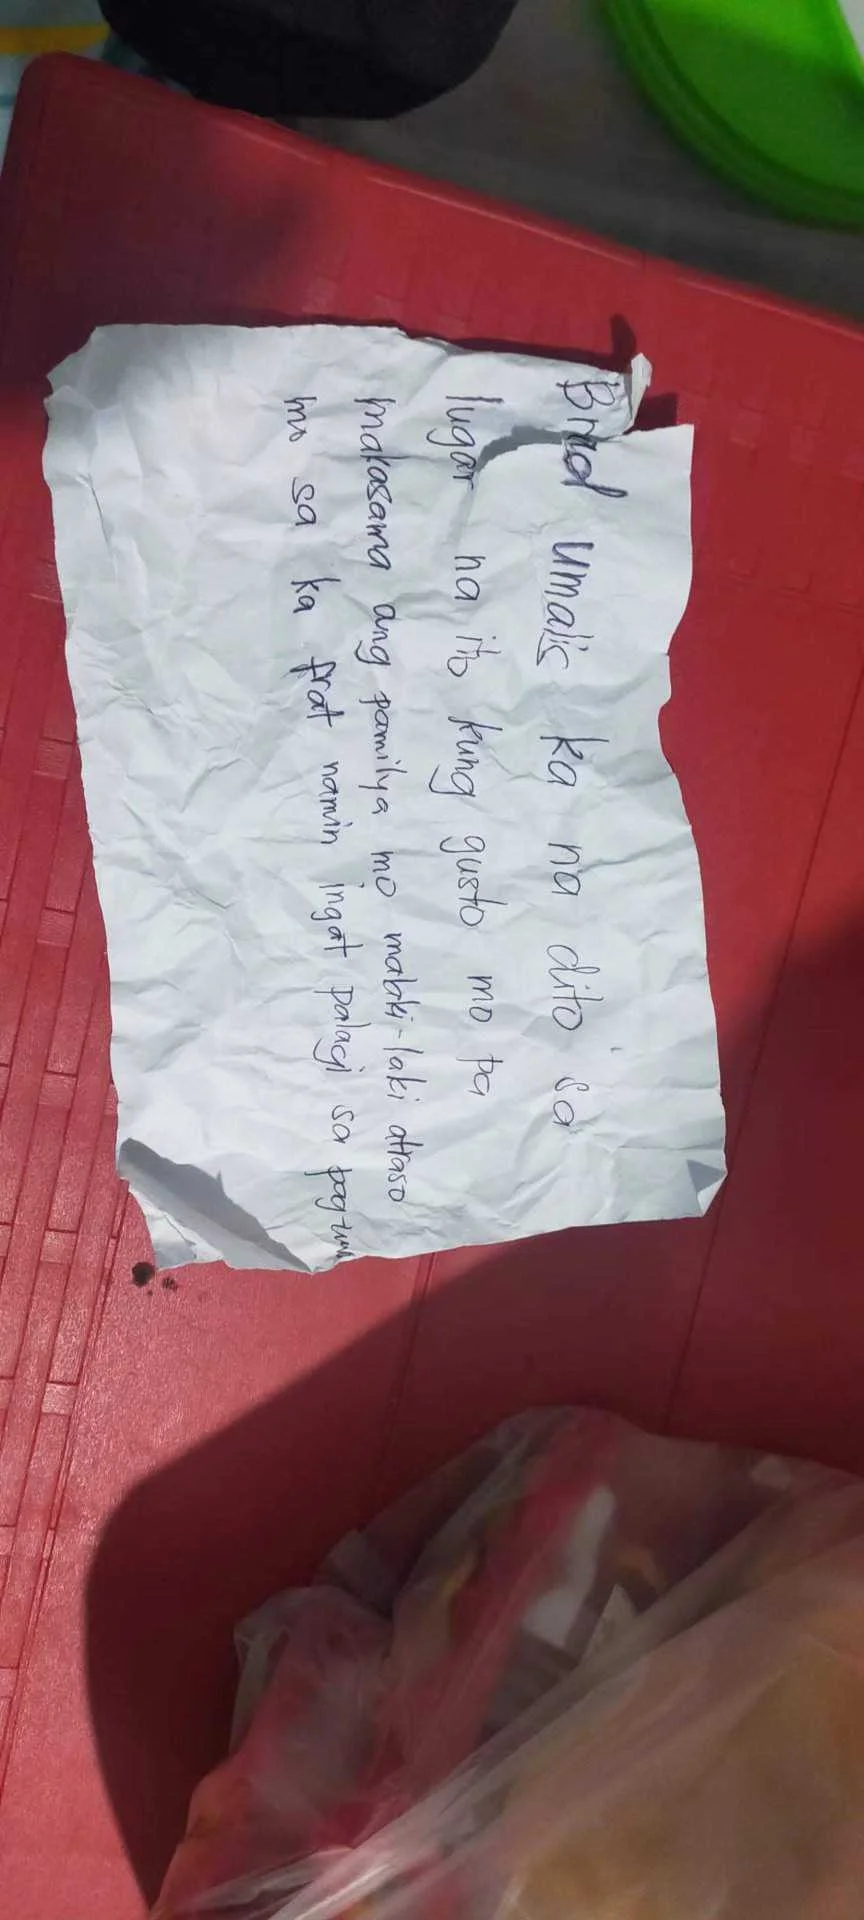 Brad umalis ka na dito sa
lugar na ito kung gusto mo pa
makasama ang pamilya mo malaki-laki atraso
mo sa ka frat namin ingat palagi sa